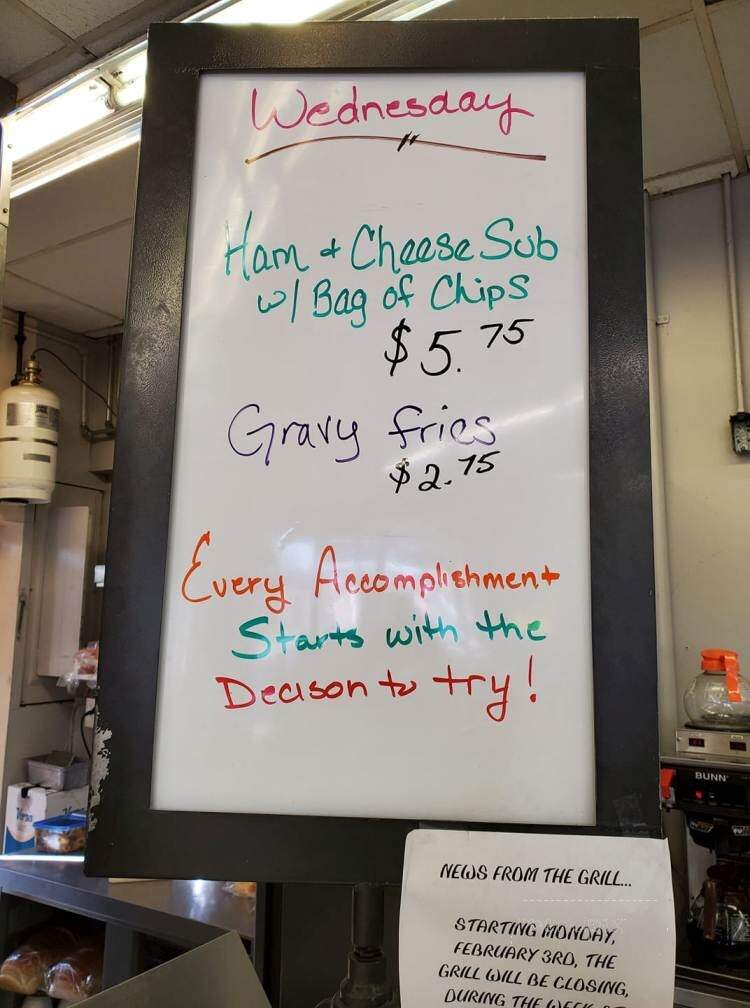 Wednesday
Ham & Cheese Sub
w/ Bag of Chips
$5.75
Gravy fries
$2.75
Every Accomplishment
Starts with the
Decison to try!
BUNN
NEWS FROM THE GRILL...
STARTING MONDAY,
FEBRUARY 3RD, THE
GRILL WILL BE CLOSING,
DURING THE WEEK